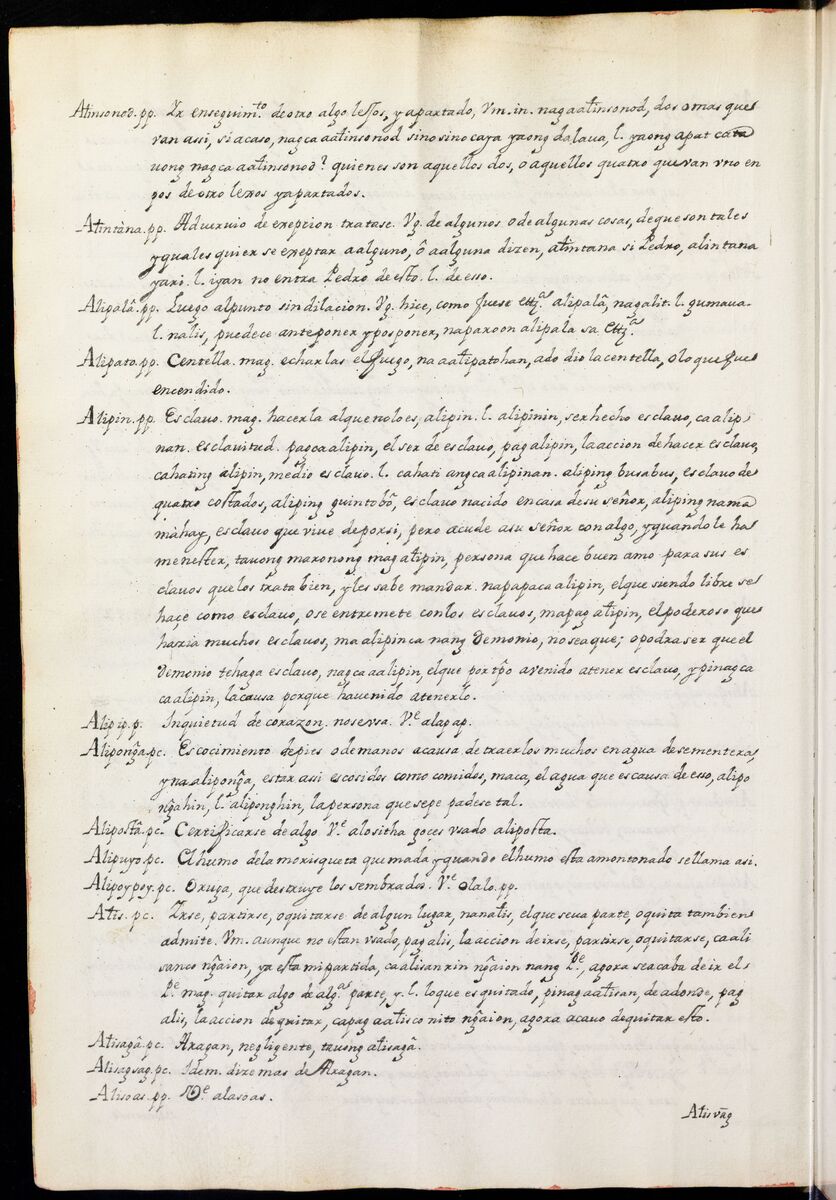 Alinsonod. pp. Ir enseguim.to de otro algo lexos, y apartado, Vm. in. nagaalinsonod, dos o mas que
van assi, si acaso, nagcaalinsonod sino sino caya yaong dalaua, l. yaong apat cata
uong nagcaalinsonod? quienes son aquellos dos, o aquellos quatro que van vno en
pos de otro lexos y apartados.
Alintàna. pp. Aduervio de exeption tratase. Vg. de algunos o de algunas cosas, de que son tales
y quales quier se exeptar a alguno, ô a alguna dizen, alintana si Pedro, alintana
yari. l. iyan no entra Pedro de esto. l. de esso.
Alipalâ. pp. Luego al punto sin dilacion. Vg. hiçe, como fuese ettz.a alipalâ, nagalit. l. gumaua.
l. nalis, puedece anteponer y posponer, naparoon alipala sa ettz.a
Alipato. pp. Centella. mag. echarlas el fuego, na aalipatohan, ado dio la centella, o lo que fue
encendido.
Alipin. pp. Esclavo. mag. hacerla al que no lo es, alipin. l. alipinin, ser hecho esclavo, caalip-
nan. esclavitud. pagcaalipin, el ser de esclavo, pag alipin, la accion de hacer esclavo,
cahating alipin, medio esclavo. l. cahati ang caalipinan. aliping busabus, esclavo de
quatro costados, aliping guintobô, esclavo nacido en casa de su señor, aliping nama
màhay, esclavo que vive de por si, pero acude a su señor con algo, y quando le ha
menester, tauong maronong mag alipin, persona que hace buen amo para sus es
clavos que los trata bien, y les sabe mandar. napapaca alipin, el que siendo libre se
haçe como esclavo, o se entremete con los esclavos, mapag alipin, el poderoso que
haria muchos esclavos, maalipin ca nang Demonio, no sea que; o podra ser que el
Demonio te haga esclavo, nagcaalipin, el que por tpo avenido a tener esclavo, y pinagca
caalipin, la causa porque ha venido a tenerlo.
Alipip. p. Inquietud de corazon. no se vsa. V.e alapap.
Alipong̃a. pc. Escocimiento de pies o de manos a causa de traerlos muchos en agua de sementeras,
y na aliponga, estar asi escosidos como comidos, maca, el agua que es causa de esso, alipo
ng̃ahin, l.a alipong̃hin, la persona que se pe padese tal.
Alipostâ. pc. Certificarse de algo V.e alositha goces vsado aliposta.
Alipuyo. pc. El humo de la morisqueta quemada y quando el humo esta amontonado se llama asi.
Alipoypoy. pc. Oruga, que destruye los sembrados. V.e olalo. pp.
Alis. pc. Irse, partirse, o quitarse de algun lugar, nanalis, el que se va parte, o quita tambien
admite. Vm. aunque no es tan vsado, pag alis, la accion de irse, partirse, o quitarse, caali
san co ng̃aion, ya esta mi partida, caalisan rin ng̃aion nang P.e, agora se acaba de ir el
P.e mag. quitar algo de alg.as parte, y. l. lo que es quitado, pinagaalisan, de adonde, pag
alis, la accion de quitar, capag aalis co nito ng̃aion, agora acavo de quitar esto.
Alisagâ. pc. Aragan, negligente, tauong alisagâ.
Alisagsag. pc. Idem. dize mas de Aragan.
Alisoas. pp. V.e alasoas.
Alisvãg